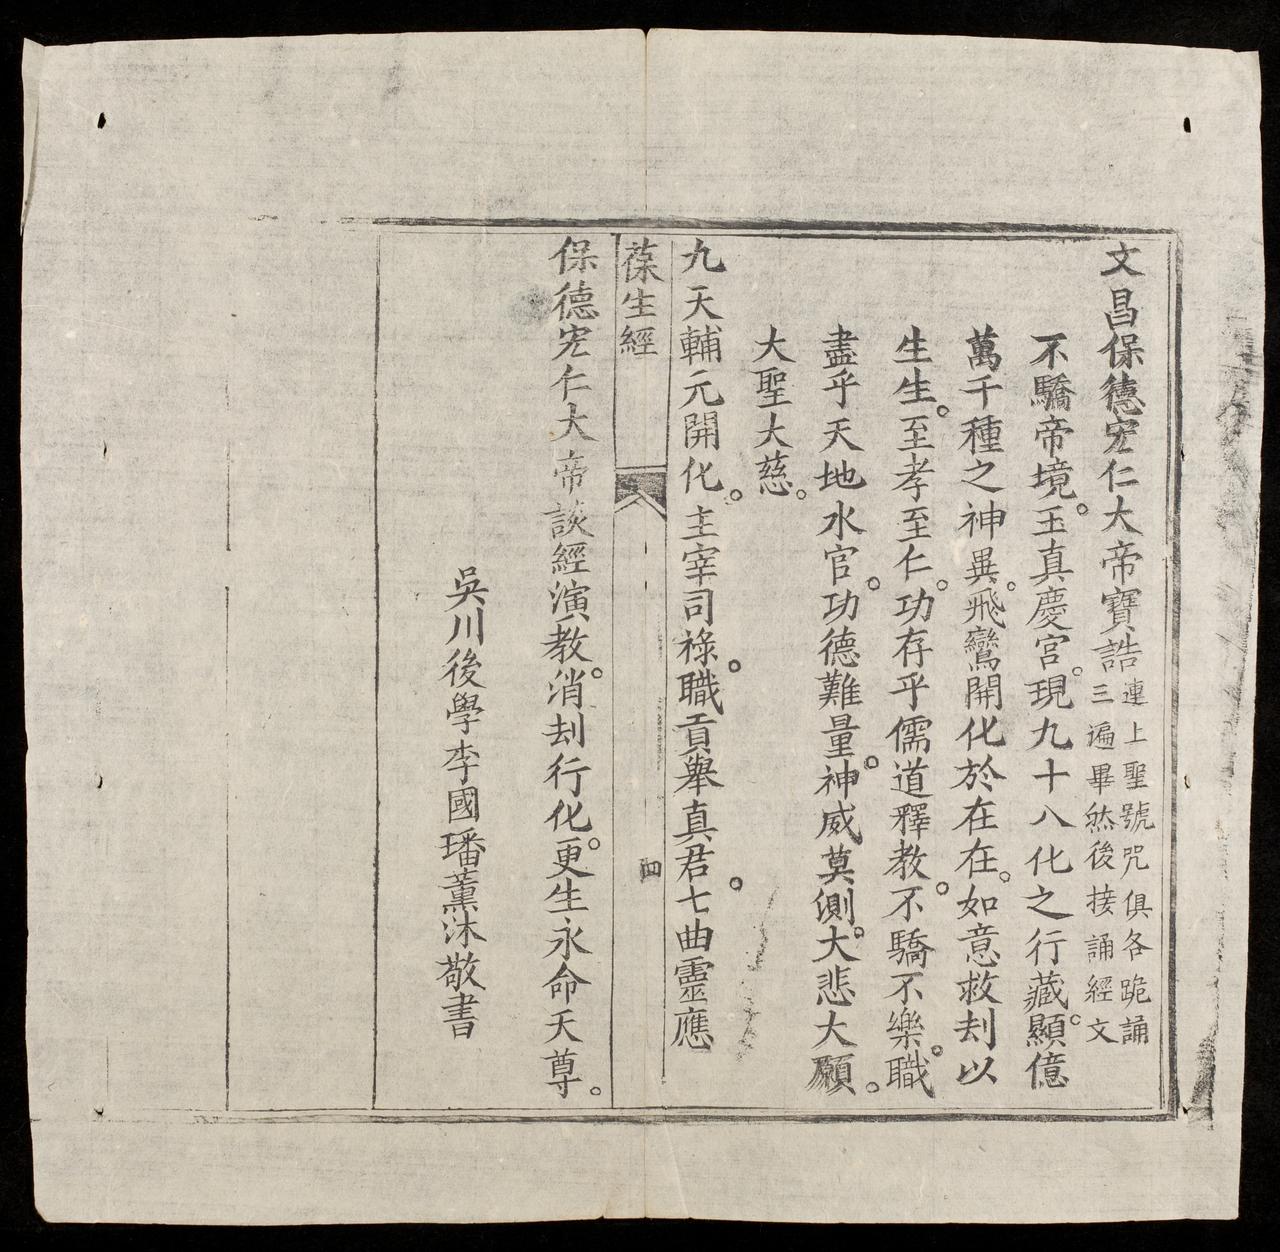 文昌保德宏仁大帝寶誥連上聖號咒俱各跪誦
三遍畢然後接誦經文
不驕帝境。玉真慶宮。現九十八化之行藏。顯億
萬千種之神異。飛鸞開化於在在。如意救刦以
生生。至孝至仁。功存乎儒道釋教。不驕不樂。職
盡乎天地水官。功德難量。神威莫測。大悲大願。
大聖大慈。
九天輔元開化。主宰司祿。職貢舉真君。七曲靈應
葆生經
四
保德宏仁大帝談經演教。消刦行化。更生永命天尊。
吳川後學李國璠薰沐敬書